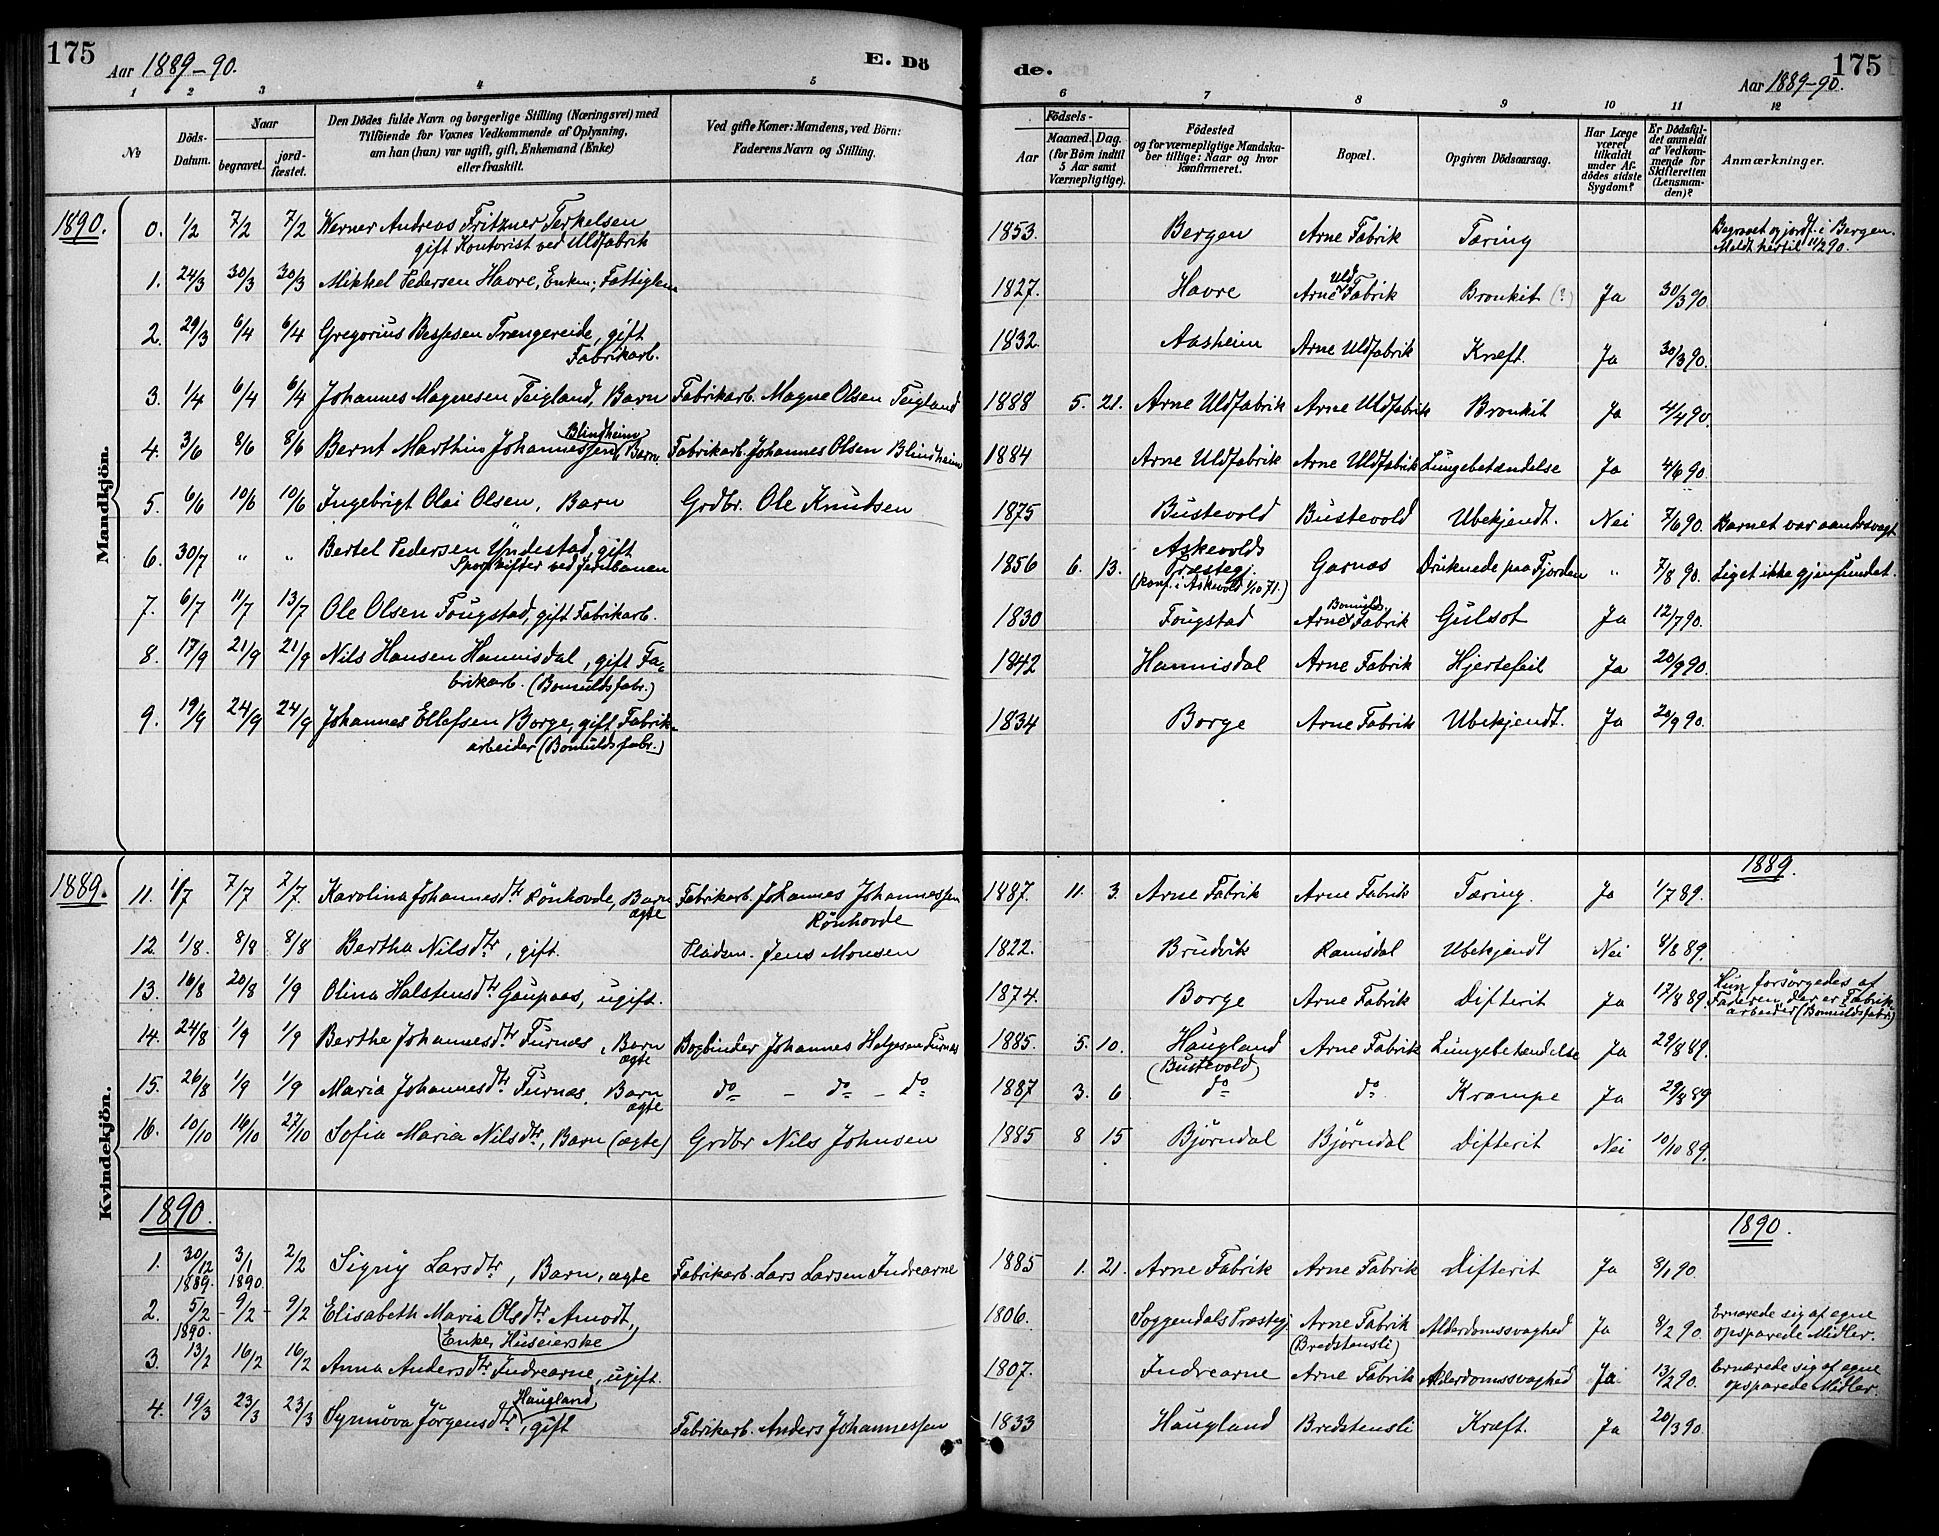 175
Aar 1889-90.
E. Dö
de.
Aar 1889-90.
175
1 2 3 4 5 6 7 8 9 10 11 12
№
Döds-Datum.
Naar
begravet.
jord-fæstet.
Den Dödes fulde Navn og borgerlige Stilling (Næringsvei) med
Tilföiende for Voxnes Vedkommende af Oplysning,
om han (hun) var ugift, gift, Enkemand (Enke)
eller fraskilt.
Ved gifte Koner: Mandens, ved Börn:
Faderens Navn og Stilling.
Födsels-
Aar
Maaned. Dag.
(for Börn indtil 5 Aar samt Værnepligtige).
Födested
og for værnepligtige Mandska-
ber tillige: Naar og hvor
konfirmeret.
Bopæl.
Opgiven Dödsaarsag.
Har Læge været tilkaldt under Af-dödes sidste Sygdom?
Er Dödsfal-det anmeldt af Vedkom-mende for Skifteretten (Lensman-den)?
Anmærkninger.
Mandkjön.
1890.
0. 1/2 7/2 7/2 Werner Andreas Fritzner Terkelsen 1853. Bergen Arne Fabrik Tæring Begravet og jordf. i Bergen.
gift Kontorist ved Uldfabrik Meldt hertil 11/2 90.
1. 24/3 30/3 30/3 Mikkel Pedersen Havre, Enkem; Fattiglem 1827. Havre Arne Uld Fabrik Bronkit (?) Ja 30/3 90.
2. 29/3 6/4 6/4 Gregorius Bessesen Trængereide, gift 1832. Aasheim Arne Uldfabrik Kræft. Ja 30/3 90.
Fabrikarb.
3. 1/4 6/4 6/4 Johannes Magnesen Teigland, Barn Fabrikarb. Magne Olsen Teigland 1888 5. 21. Arne Uldfabrik Arne Uldfabrik Bronkit Ja 4/4 90.
4. 3/6 8/6 8/6 Bernt Marthin Johannessen Blindheim, Barn. Fabrikarb. Johannes Olsen Blindheim 1884 Arne Uldfabrik Arne Uldfabrik Lungebetændelse Ja 4/6 90.
5. 6/6 10/6 10/6 Ingebrigt Olai Olsen, Barn Grdbr. Ole Knudsen 1875 Bustevold Bustevold Ubekjendt. Nei 7/6 90. Barnet var aandssvagt
6. 30/7 " " Bertel Pedersen Yndestad, gift 1856 6. 13. Askevolds Præstegj. Garnæs Druknede paa Fjorden " 7/8 90. Liget ikke gjenfundet.
Sporskifter ved Jernbanen (konf. i Askevold 1/10 71.)
7. 6/7 11/7 13/7 Ole Olsen Fougstad, gift Fabrikarb. 1830 Fougstad Arne Bomulds Fabrik Gulsot Ja 12/7 90.
8. 17/9 21/9 21/9 Nils Hansen Hannisdal, gift Fa- 1842 Hannisdal Arne Fabrik Hjertefeil Ja 20/9 90.
brikarb. (Bomuldsfabr.)
9. 19/9 24/9 24/9 Johannes Ellefsen Borge, gift Fabrik- 1834 Borge Arne Fabrik Ubekjendt. Ja 20/9 90.
arbeider (Bomuldsfabr.)
Kvindekjön.
1889. 1889.
11. 1/7 7/7 7/7 Karolina Johannesdtr Rönhovde, Barn ægte Fabrikarb. Johannes Johannessen Rönhovde 1887. 11. 3. Arne Fabrik Arne Fabrik Tæring. Ja 1/7 89.
12. 1/8. 8/8 8/8 Bertha Nilsdtr, gift. Pladsm. Jens Monsen 1822. Brudvik Ramsdal Ubekjendt Nei 8/8 89.
13. 16/8 20/8 1/9 Olina Halstensdtr Gaupaas, ugift. 1874. Borge Arne Fabrik Difterit Ja 17/8 89. Hun forsørgedes af
Faderen, der er Fabrik
arbeider (Bomuldsfabr.)
14. 24/8 1/9 1/9 Berthe Johannesdtr Furnæs, Barn ægte Bogbinder Johannes Helgesen Furnæs 1885. 5. 10. Haugland (Bustevold) Arne Fabrik Lungebetændelse Ja 29/8 89.
15. 26/8 1/9 1/9 Maria Johannesdtr Furnæs, Barn ægte do - do - do 1887 3. 6. do do. Krampe Ja 29/8 89
16. 10/10 16/10 27/10 Sofia Maria Nilsdtr, Barn (ægte) Grdbr Nils Johnsen 1885 8 15 Björndal Björndal Difterit Nei 10/10 89.
1890. 1890.
1. 30/12 1889. 3/1 1890. 2/2 Signy Larsdtr, Barn, ægte Fabrikarb. Lars Larsen Indrearne 1885 1. 21. Arne Fabrik Arne Fabrik Difterit Ja 8/1 90.
2. 5/2 1890. 9/2 9/2 Elisabeth Maria Olsdtr Amodt, 1806. Soggendals Præstegj. Arne Fabrik Alderdomssvaghed Ja 8/2 90. Ernærede sig af egne
Enke, Huseierske (Bredstensli) opsparede Midler.
3. 13/2 16/2 16/2 Anna Andersdtr Indrearne, ugift. 1807. Indrearne Arne Fabrik Alderdomssvaghed Ja 13/2 90. Ernærede sig af egne
opsparede Midler.
4. 19/3 23/3 23/3 Synnöva Jörgensdtr Haugland, gift Fabrikarb. Anders Johannessen 1833 Haugland Bredstensli Kræft. Ja 20/3 90.